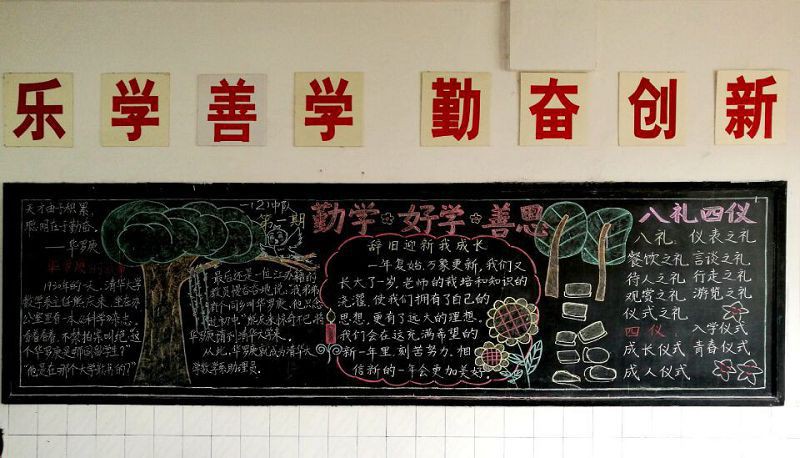 乐学善学 勤奋创新
天才由于积累,
聪明在于勤奋。
——华罗庚
华罗庚的故事
1930年的一天,清华大学
数学系主任熊庆来,坐在办
公室里看一本《科学》杂志。
看着看着,不禁拍案叫绝:"这
个华罗庚是哪国留学生?"
"他是在哪个大学教书的?"
一(2)中队
第一期
最后还是一位江苏籍的
教员慢吞吞地说:
华罗庚请到清华大学来。
从此,华罗庚就成为清华大
学数学系助理员。
勤学 好学 善思
辞旧迎新我成长
一年复始,万象更新,我们又
长大了一岁,老师的栽培和知识的
浇灌,使我们拥有了自己的
思想,更有了远大的理想。
我们会在这充满希望的
新一年里,刻苦努力,相
信新的一年会更加美好。
八礼四仪
八礼 仪表之礼
餐饮之礼 言谈之礼
待人之礼 行走之礼
观赏之礼 游览之礼
仪式之礼
四仪 入学仪式
成长仪式 青春仪式
成人仪式